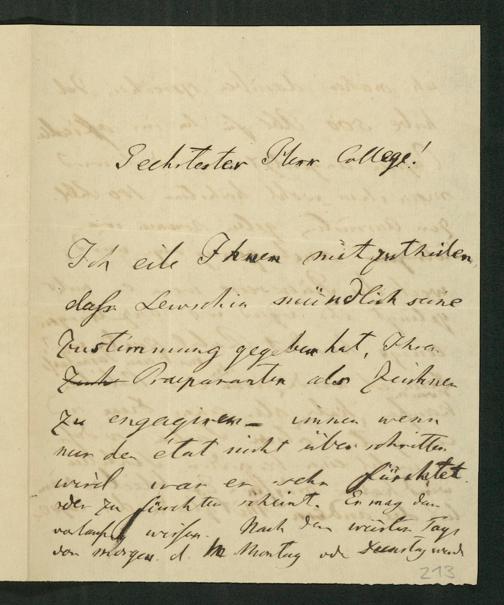 Geehrtester Herr College!
Ich eile Ihnen mitzutheilen,
dass Lewschin mündlich seine
Zustimmung gegeben hat, Ihren
Praeparanten als Zeichner
zu engagiren – immer wenn
nur der état nicht überschritten
wird was er sehr fürchtet
oder zu fürchten scheint. Er mag dann
vorläufig warten. Nach dem
von morgen d. h. Montag oder Dienstag werde
213